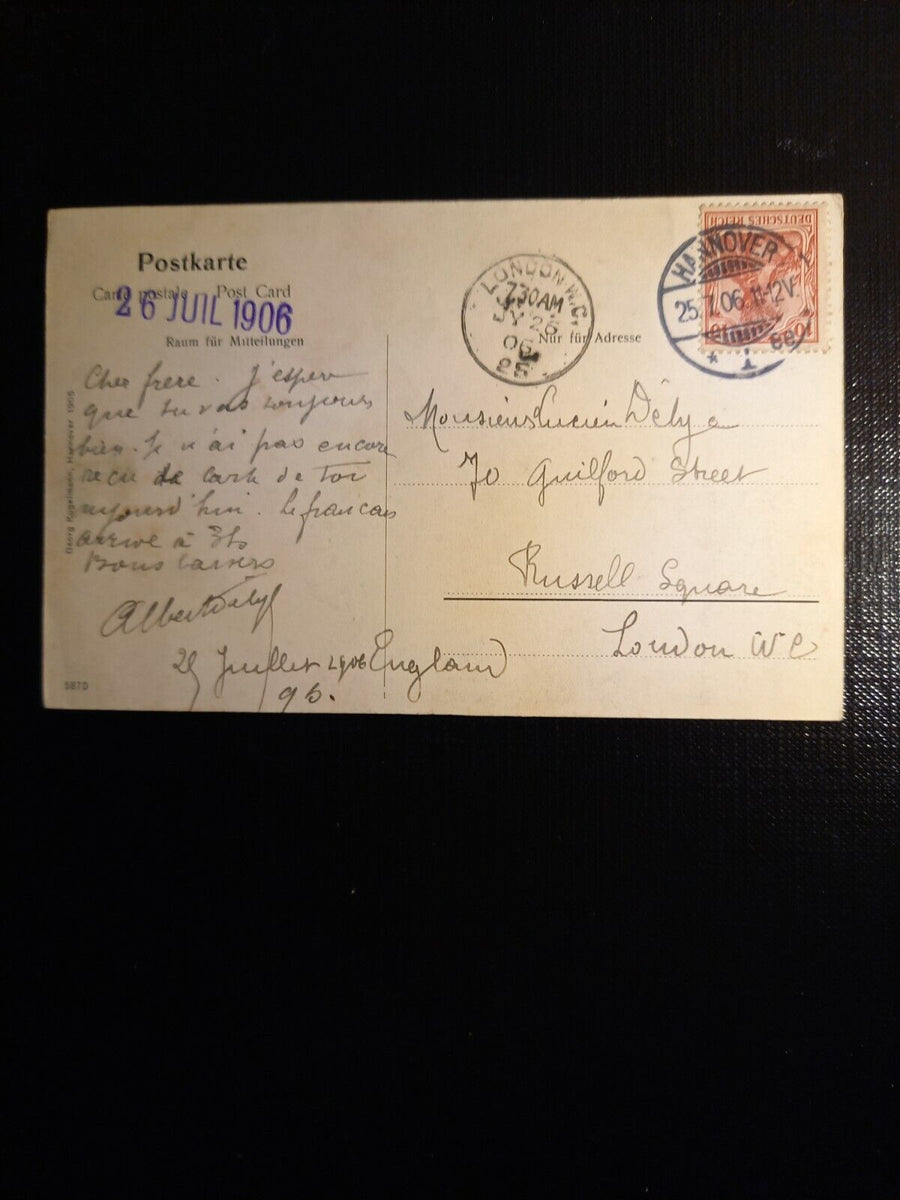 Postkarte
Carte postale Post Card
26 JUIL 1906
Raum für Mitteilungen
Nur für Adresse
LONDON W.C.
7.30AM
JY 26
06
DEUTSCHES REICH
10
HANNOVER
25.7.06.11-12V.
* 1 ee
Cher frere. J'espere
que tu vas toujours
bien. Je n'ai pas encore
recu de carte de Toi
aujourd'hui. Le francais
arrive à
Bons baisers
Albert
25 Juillet 1906
95.
Monsieur Lucien
70 Guilford Street
Russell Square
London WC
England
Georg Kugelmann, Hannover 1905
5870